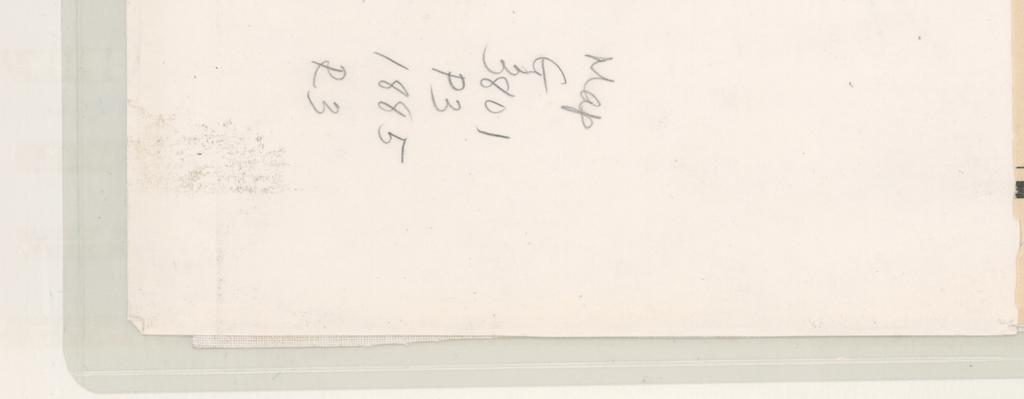 Map
G
3801
P3
1885
R3